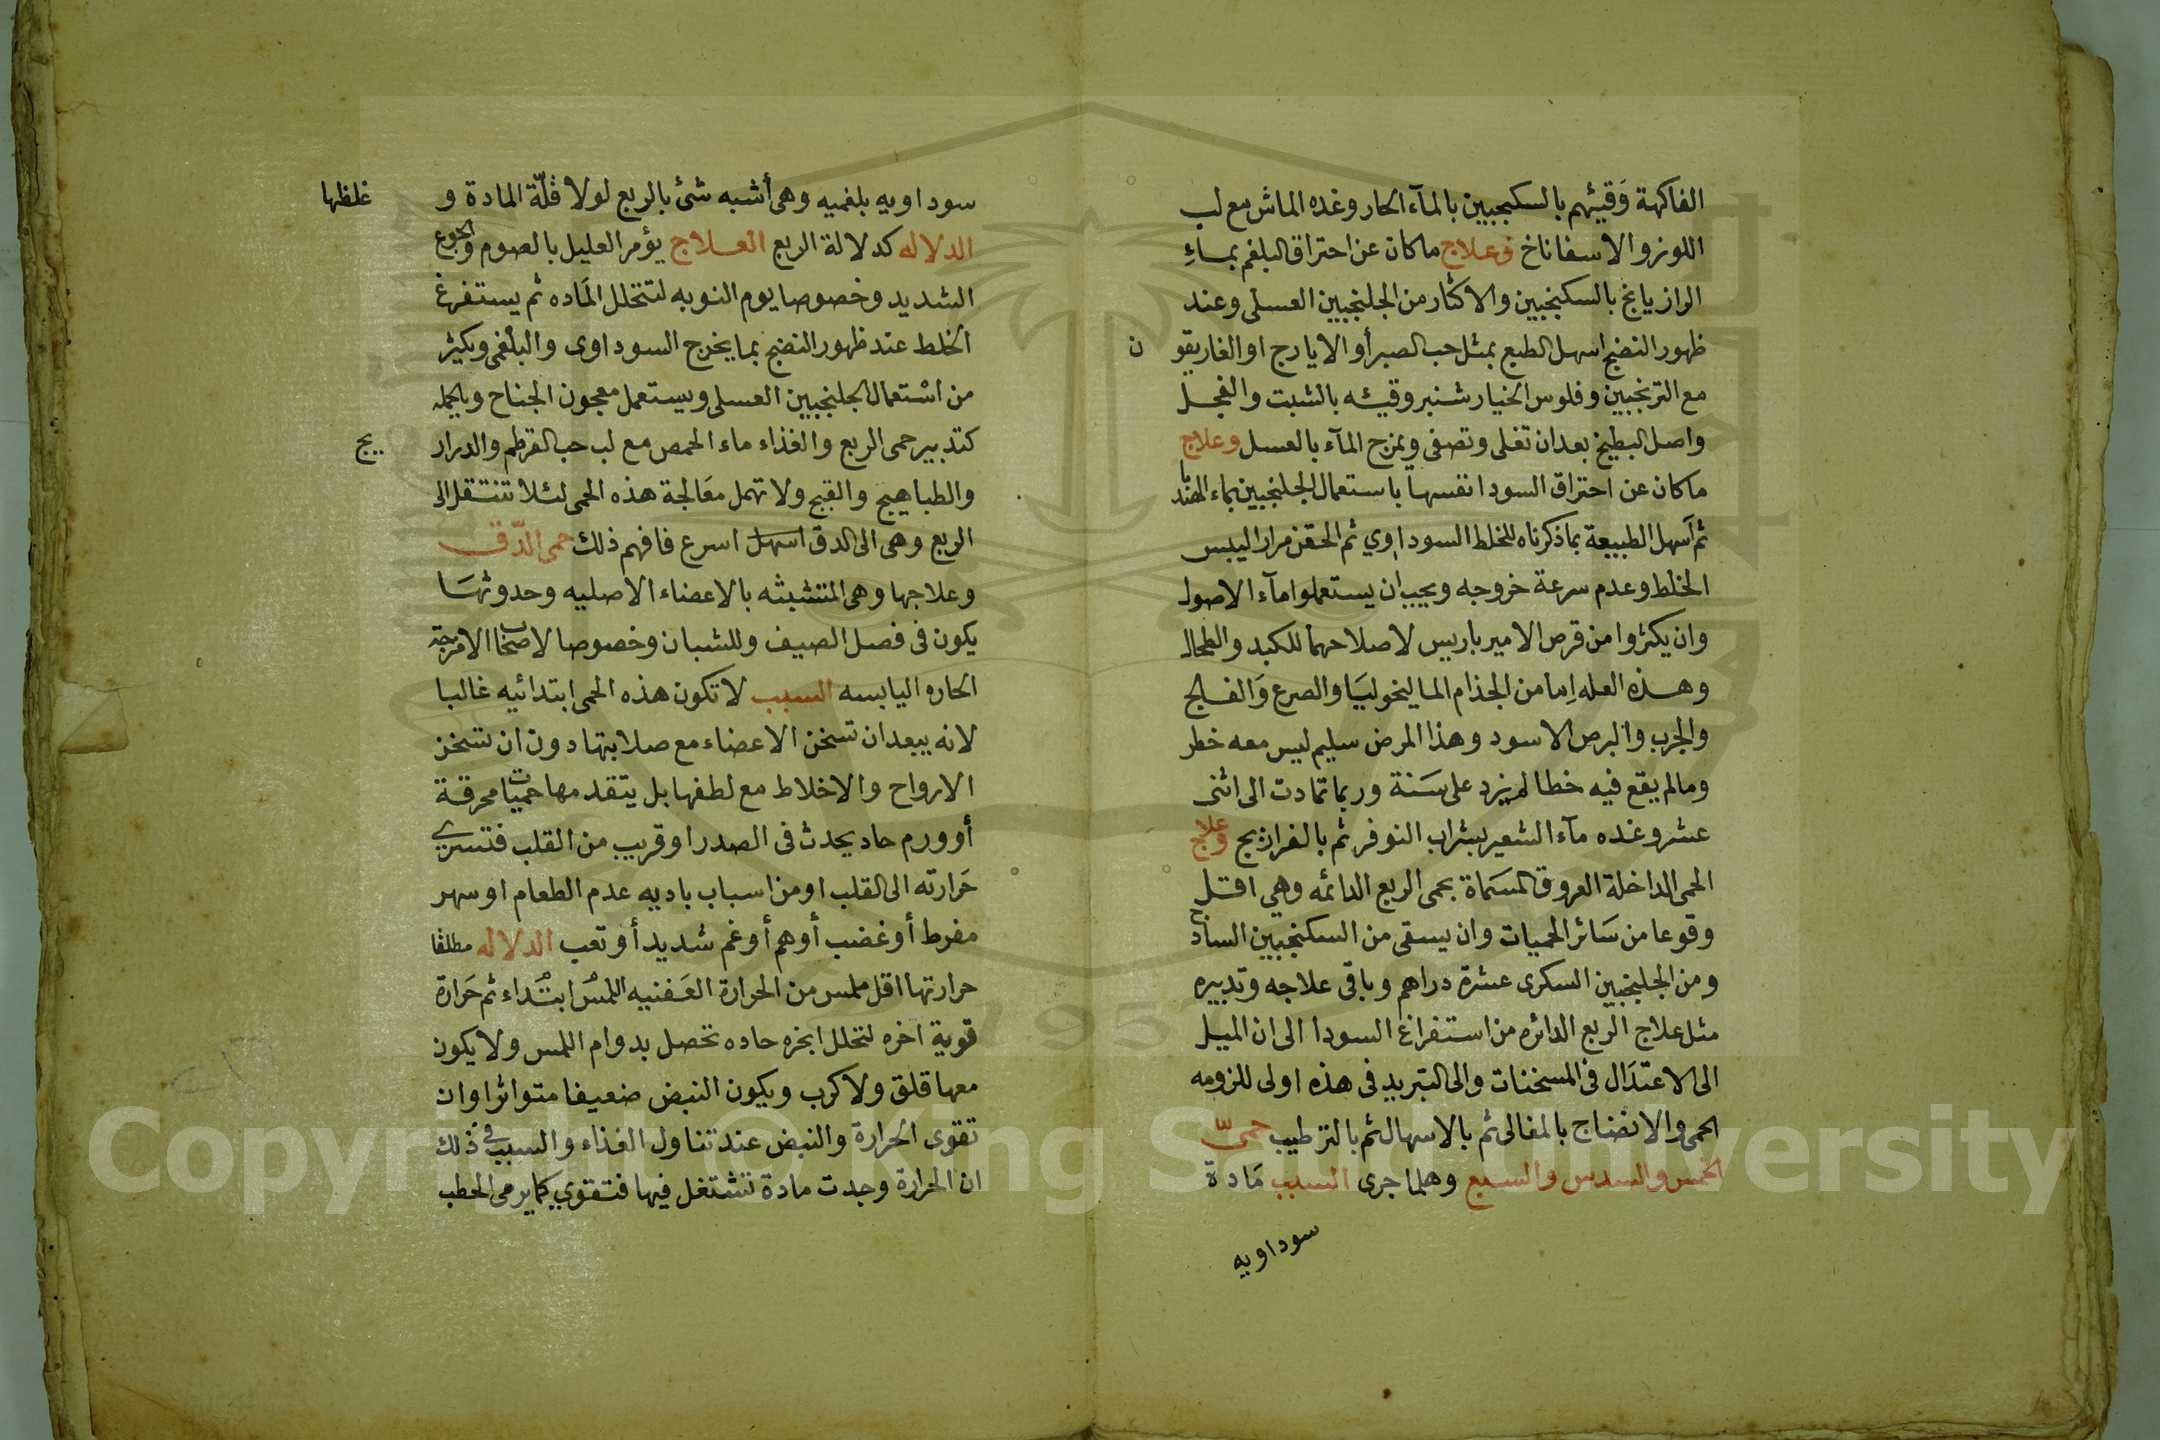 الفاكهة وَقيئهم بالسكنجبين بالمآء الحار وغده الماش مع لب
اللوز والاسفاناخ وعلاج ماكان عن احتراق البلغم بماءِ
الرازيانج بالسكنجبين والاكثار من الجلنجبين العسلى وعند
ظهور النضج اسهل الطبع بمثل حب الصبر أو الايارج او الغاريقو ن
مع الترنجبين وفلوس الخيار شنبر وقيئه بالشبت والفجل
واصل البطيخ بعد ان تغلى وتصفى ويمزج المآء بالعسل وعلاج
ماكان عن احتراق السودا نفسها باستعمال الجلنجبين بماء الهندبا
ثم آسهل الطبيعة بما ذكرناه للخلط السوداوي ثم الحقن مرارا ليبس
الخلط وعدم سرعة خروجه ويجب ان يستعملوا مآء الاصول
وان يكثروا من قرص الامير باريس لاصلاحهما للكبد والطحال
وهذه العله اِما من الجذام المالينخوليَا والصرع وَالفالج
والجرب والبرص الاسود وهذا المرض سليم ليس معه خطر
ومالم يقع فيه خطا لم يزد على سَنة وربما تمادت الى اثنى
عشر وغده مآء الشعير بشراب النوفر ثم بالفراريج وعلاج
الحمى الداخلة العروق المسَماة بحمى الربع الدائمه وهي آقل
وقوعا من سَائر الحميات وان يسقى من السكنجبين الساذج
ومن الجلنجبين السكرى عشرة دراهم وباقى علاجه وتدبيره
مثل علاج الربع الدائره من استفراغ السودا الى ان الميل
الى الاعتدَال فى المسخنات والى التبريد فى هذه اولى للزومه
الحمى والانضاج بالمغالى ثم بالاسهال ثم بالترطيب حمىّ
الخمس والسدس والسبع وهلما جرى السبب مَادة
سوداويه
سوداويه بلغميه وهى أشبه شئ بالربع لولا قلّة المادة و غلظها
الدلاله كدلالة الربع العلاج يؤمر العليل بالصوم والجوع
الشديد وخصوصا يوم النوبه لتتحلل المَاده ثم يستفرغ
الخلط عند ظهور النضج بما يخرج السوداوى والبلْغمى ويكثر
من اسْتعمال الجلنجبين العسلى ويستعمل معجون الجناح وبالجمله
كتدبير حمى الربع والغذاء ماء الحمص مع لب حب القرطم والدرار يج
والطباهيج والقبج ولا تهمل معَالجة هذه الحمى لئلا تنتقل الى
الربع وهى الى الدق اسهل اسرع فافهم ذلك حمى الدّق
وعلاجها وهى المتشبثه بالاعضاء الاصليه وحدوثهَا
يكون فى فصل الصيف وللشبان وخصوصا لاصحاب الامزجة
الحاره اليابسه السبب لاتكون هذه الحمى ابتدائيه غالبا
لانه يبعد ان تسخن الاعضاء مع صلابتها دون ان تسخن
الارواح والاخلاط مع لطفها بل يتقدمها حميّات محرقة
أو ورم حاد يحدث فى الصدر او قريب من القلب فتسري
حَرارته الى القلب او من اسباب باديه عدم الطعام او سهر
مفرط أو غضب أو هم أو غم شديد أو تعب الدلاله مطلقا
حرارتها اقل ملمس من الحرارة العَفنيه اللمسُ ابتُداء ثم حَرارة
قوية اخره لتحلل ابخره حاده تحصل بدوام اللمس ولا يكون
معها قلق ولا كرب ويكون النبض ضعيفا متواترا وان
تقوى الحرارة والنبض عند تناول الغذاء والسبب فى ذلك
ان الحرارة وجدت مادة تشتغل فيها فتقوي كما يرمى الحطب
Copyright © King Saud University